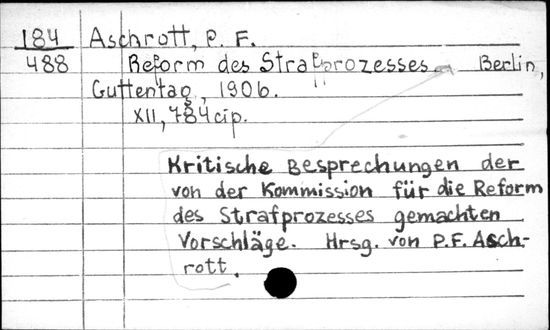 184 Aschrott, P. F.
488 Reform des Strafprozesses Berlin,
Guttentag, 1906.
XII, 784 cip.
Kritische Besprechungen der
von der Kommission für die Reform
des Strafprozesses gemachten
Vorschläge. Hrsg. von P.F. Asch-
rott.